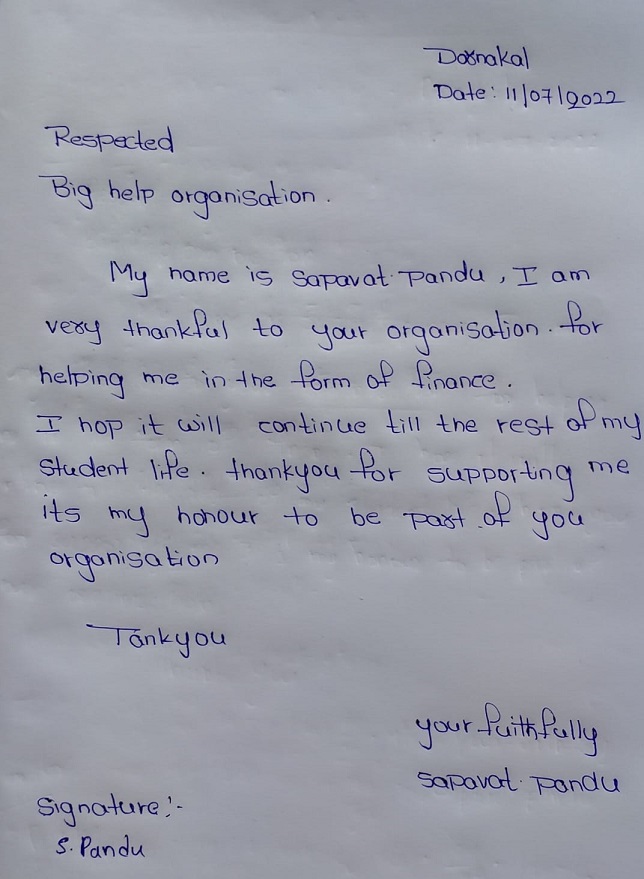 Dornakal
Date: 11/07/2022
Respected
Big help organisation.
My name is Sapavat Pandu, I am
very thankful to your organisation. for
helping me in the form of finance.
I hop it will continue till the rest of my
student life. thankyou for supporting me
its my honour to be part of you
organisation
Tankyou
your faithfully
Sapavat Pandu
Signature:-
S. Pandu